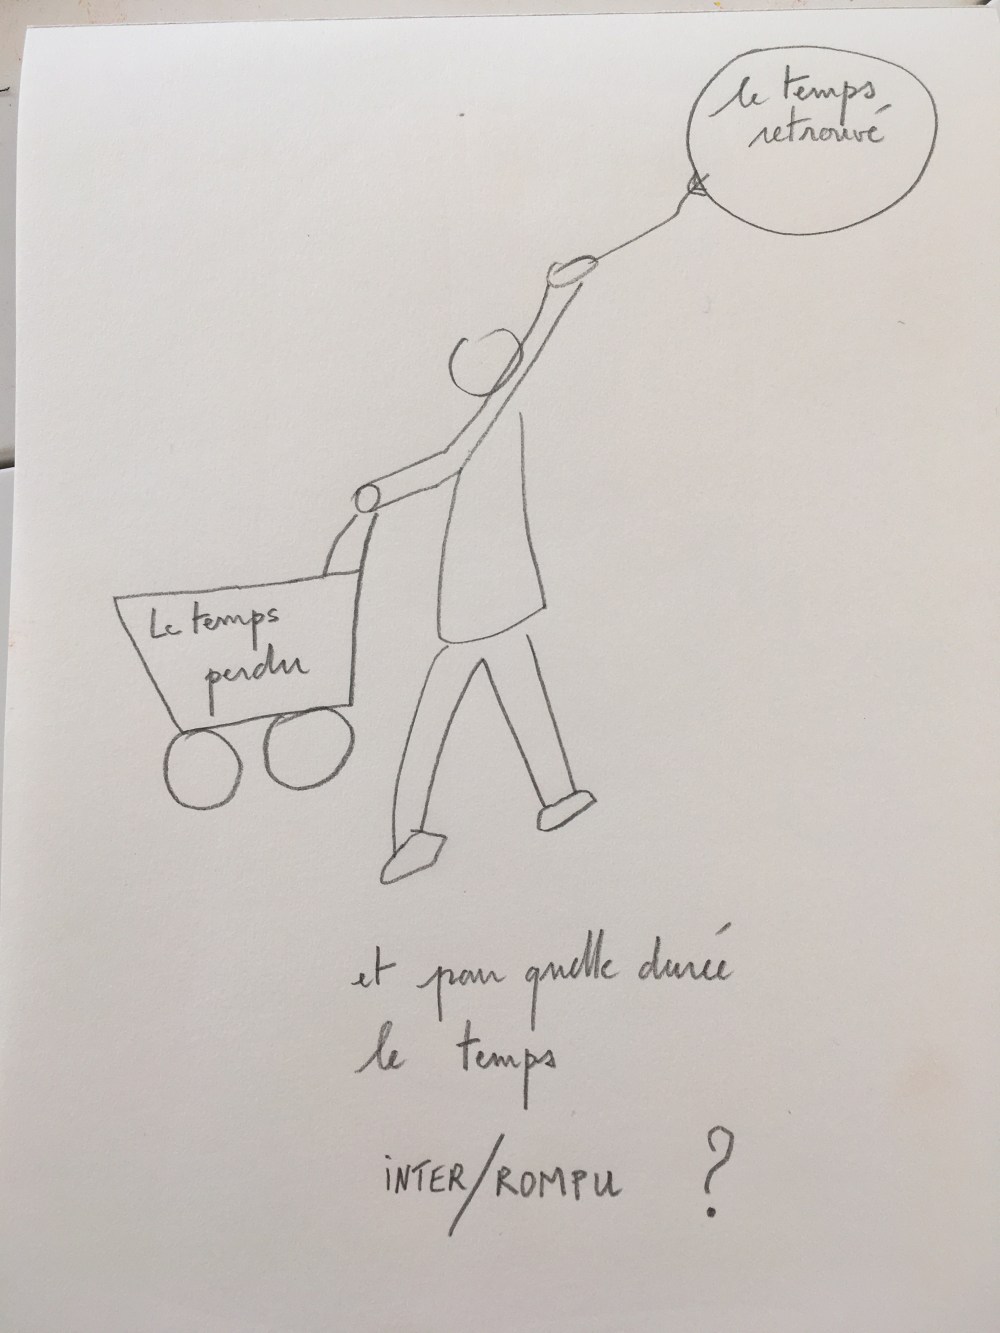 le temps
retrouvé
Le temps
perdu
et pour quelle durée
le temps
iNTER/ROMPU ?